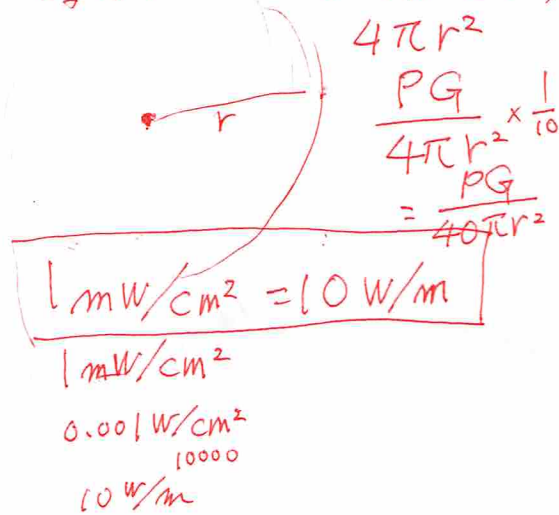 4πr²
r
PG/4πr² × 1/10
= PG/40πr²
1mW/cm² = 10W/m
1mW/cm²
0.001W/cm²
10000
10W/m